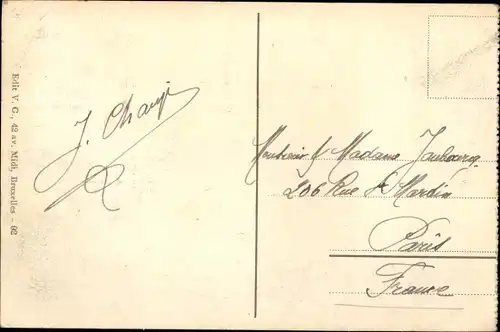 Edit V. G., 42 av. Midi, Bruxelles - 62
J.
Monsieur & Madame
206 Rue St Martin
Paris
France